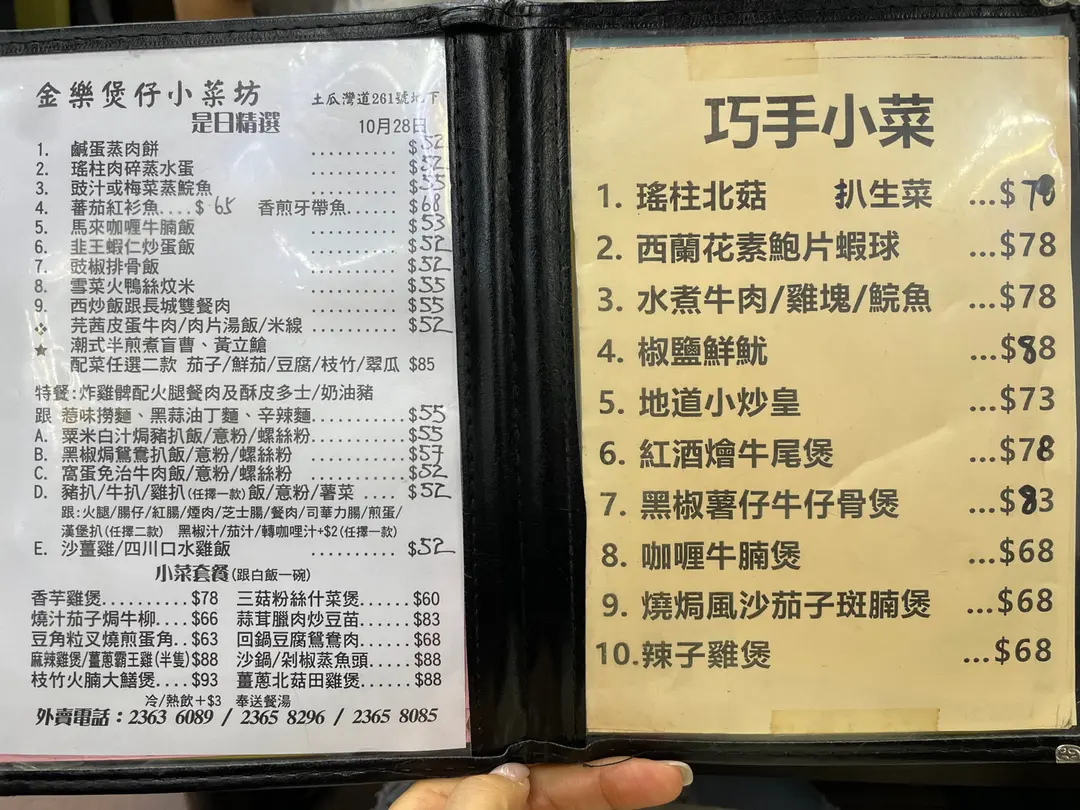 金樂煲仔小菜坊 土瓜灣道261號地下
是日精選 10月28日
1. 鹹蛋蒸肉餅 .......... $52
2. 瑤柱肉碎蒸水蛋 .......... $52
3. 豉汁或梅菜蒸鯇魚 .......... $55
4. 蕃茄紅衫魚....$65 香煎牙帶魚......$68
5. 馬來咖喱牛腩飯 .......... $53
6. 韭王蝦仁炒蛋飯 .......... $52
7. 豉椒排骨飯 .......... $52
8. 雪菜火鴨絲炆米 .......... $55
9. 西炒飯跟長城雙餐肉 .......... $55
❖ 芫茜皮蛋牛肉/肉片湯飯/米線 .......... $52
★ 潮式半煎煮盲曹、黃立鱠
配菜任選二款 茄子/鮮茄/豆腐/枝竹/翠瓜 $85
特餐:炸雞髀配火腿餐肉及酥皮多士/奶油豬
跟 惹味撈麵、黑蒜油丁麵、辛辣麵.......... $55
A. 粟米白汁焗豬扒飯/意粉/螺絲粉.......... $55
B. 黑椒焗鴛鴦扒飯/意粉/螺絲粉 .......... $57
C. 窩蛋免治牛肉飯/意粉/螺絲粉 .......... $52
D. 豬扒/牛扒/雞扒(任擇一款)飯/意粉/薯菜 .... $52
跟:火腿/腸仔/紅腸/煙肉/芝士腸/餐肉/司華力腸/煎蛋/
漢堡扒(任擇二款) 黑椒汁/茄汁/轉咖哩汁+$2(任擇一款)
E. 沙薑雞/四川口水雞飯 .......... $52
小菜套餐(跟白飯一碗)
香芋雞煲.........$78 三菇粉絲什菜煲......$60
燒汁茄子焗牛柳....$66 蒜茸臘肉炒豆苗......$83
豆角粒叉燒煎蛋角..$63 回鍋豆腐鴛鴦肉......$68
麻辣雞煲/薑蔥霸王雞(半隻)$88 沙鍋/剁椒蒸魚頭......$88
枝竹火腩大鱔煲....$93 薑蔥北菇田雞煲......$88
冷/熱飲+$3 奉送餐湯
外賣電話：2363 6089 / 2365 8296 / 2365 8085
巧手小菜
1. 瑤柱北菇 扒生菜 ...$78
2. 西蘭花素鮑片蝦球 ...$78
3. 水煮牛肉/雞塊/鯇魚 ...$78
4. 椒鹽鮮魷 ...$88
5. 地道小炒皇 ...$73
6. 紅酒燴牛尾煲 ...$78
7. 黑椒薯仔牛仔骨煲 ...$83
8. 咖喱牛腩煲 ...$68
9. 燒焗風沙茄子斑腩煲 ...$68
10.辣子雞煲 ...$68